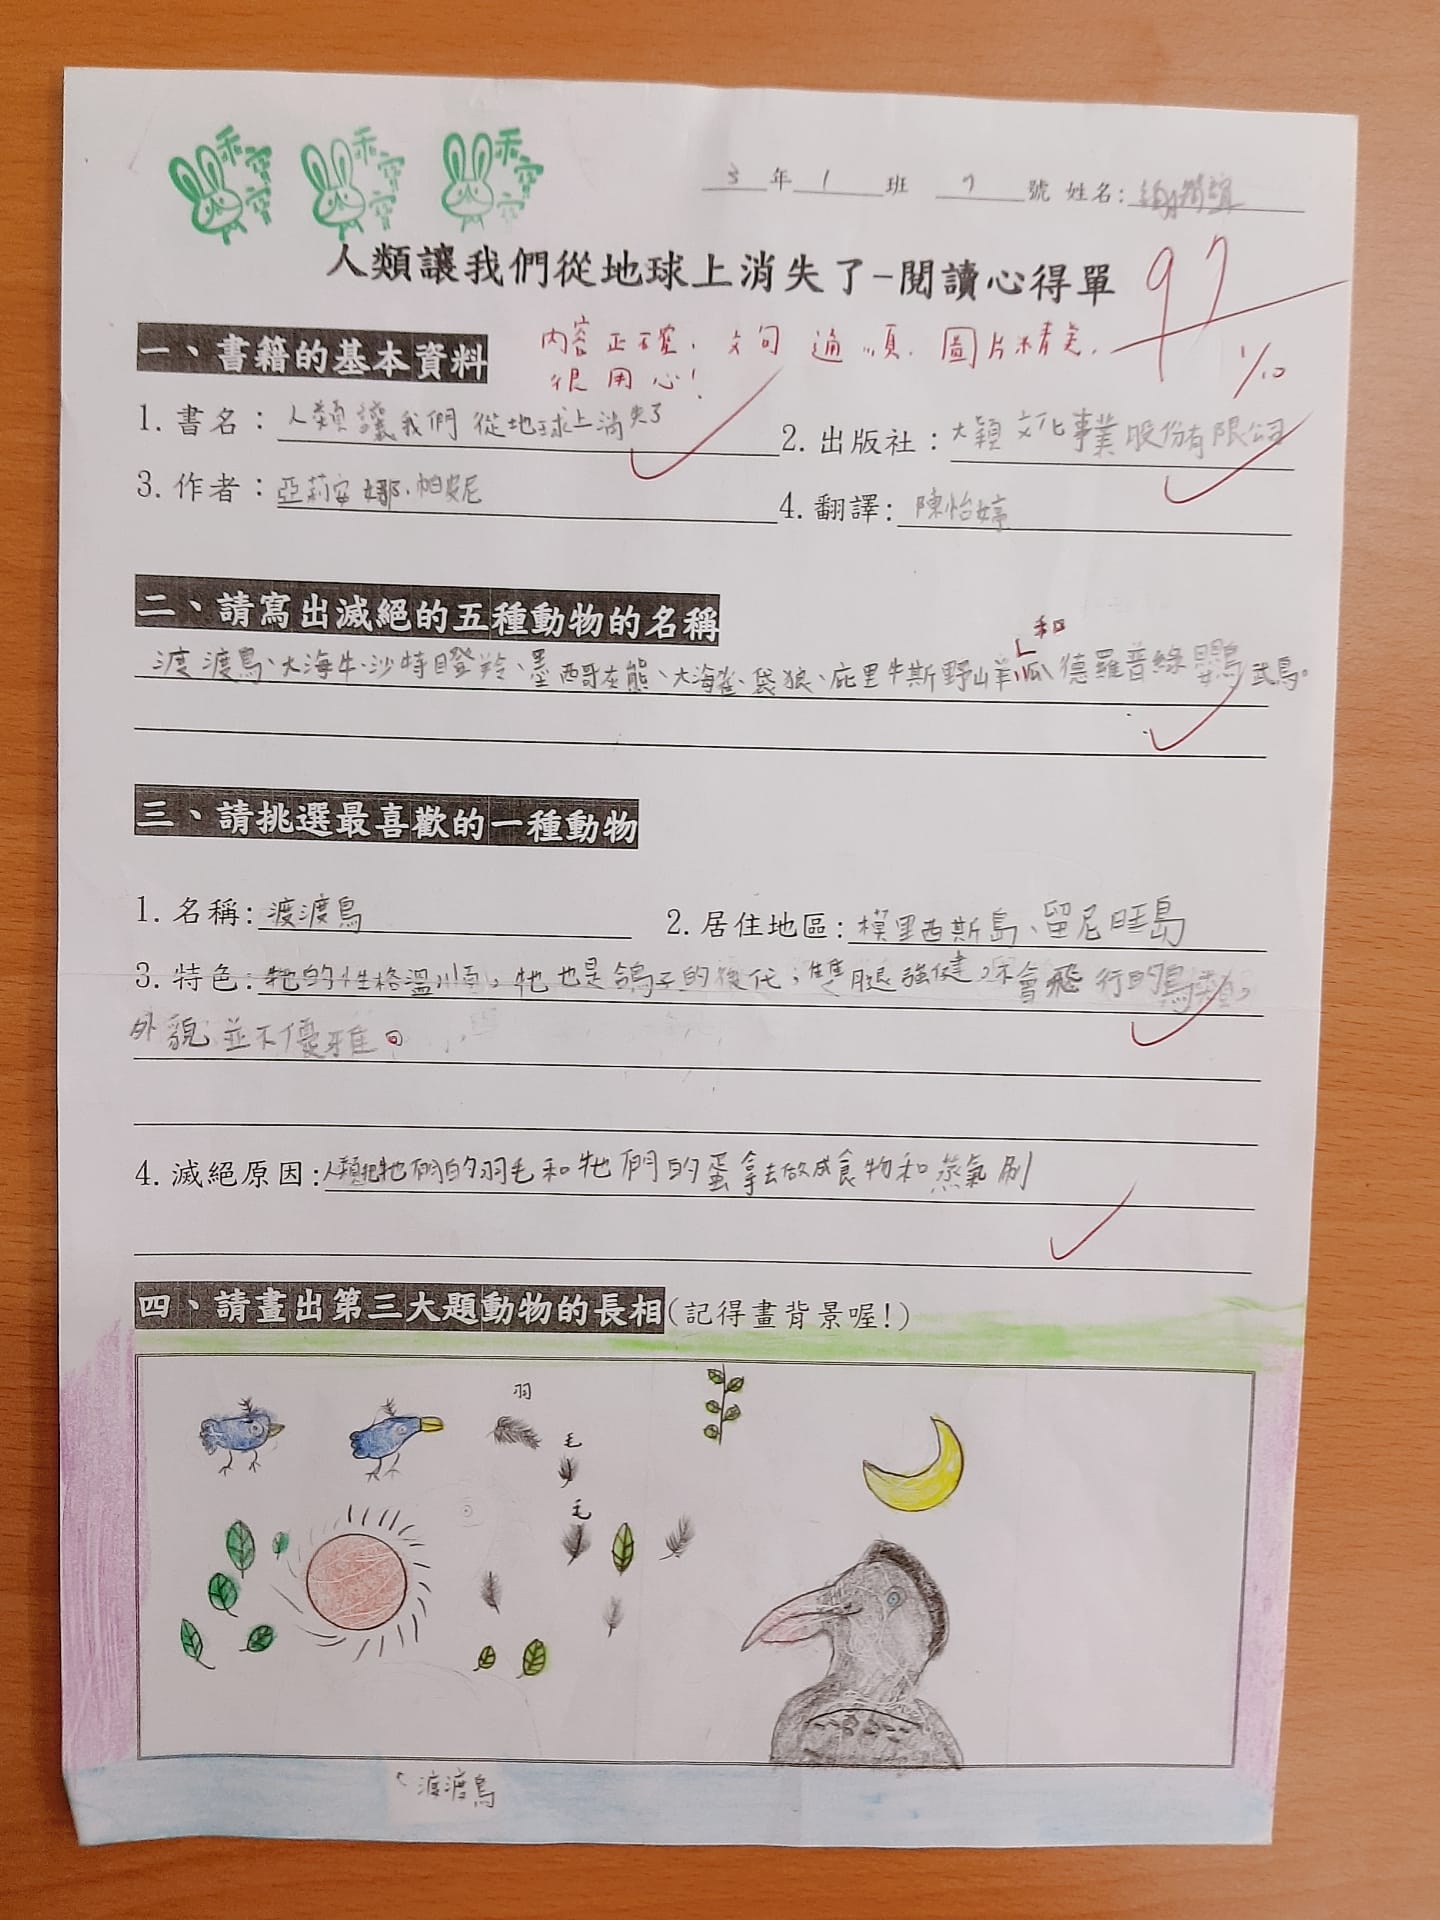 乖寶寶 乖寶寶 乖寶寶
3年1班 7號 姓名:
人類讓我們從地球上消失了-閱讀心得單
97
1/10
內容正確，文句通順，圖片精美，
很用心!
一、書籍的基本資料
1.書名：人類讓我們從地球上消失了 2.出版社：大穎文化事業股份有限公司
3.作者：亞莉安娜·帕妮尼 4.翻譯:陳怡婷
二、請寫出滅絕的五種動物的名稱
和
渡渡鳥、大海牛、沙特瞪羚、墨西哥灰熊、大海雀、袋狼、庇里牛斯野山羊、瓜德羅普綠鸚鵡。
三、請挑選最喜歡的一種動物
1.名稱:渡渡鳥 2.居住地區:模里西斯島、留尼旺島
3.特色:牠的性格溫順，牠也是鴿子的後代，雙腿強健，不會飛行的鳥類，
外貌並不優雅。
4.滅絕原因:人類把牠們的羽毛和牠們的蛋拿去做成食物和蒸氣刷
四、請畫出第三大題動物的長相(記得畫背景喔!)
羽
毛
毛
渡渡鳥